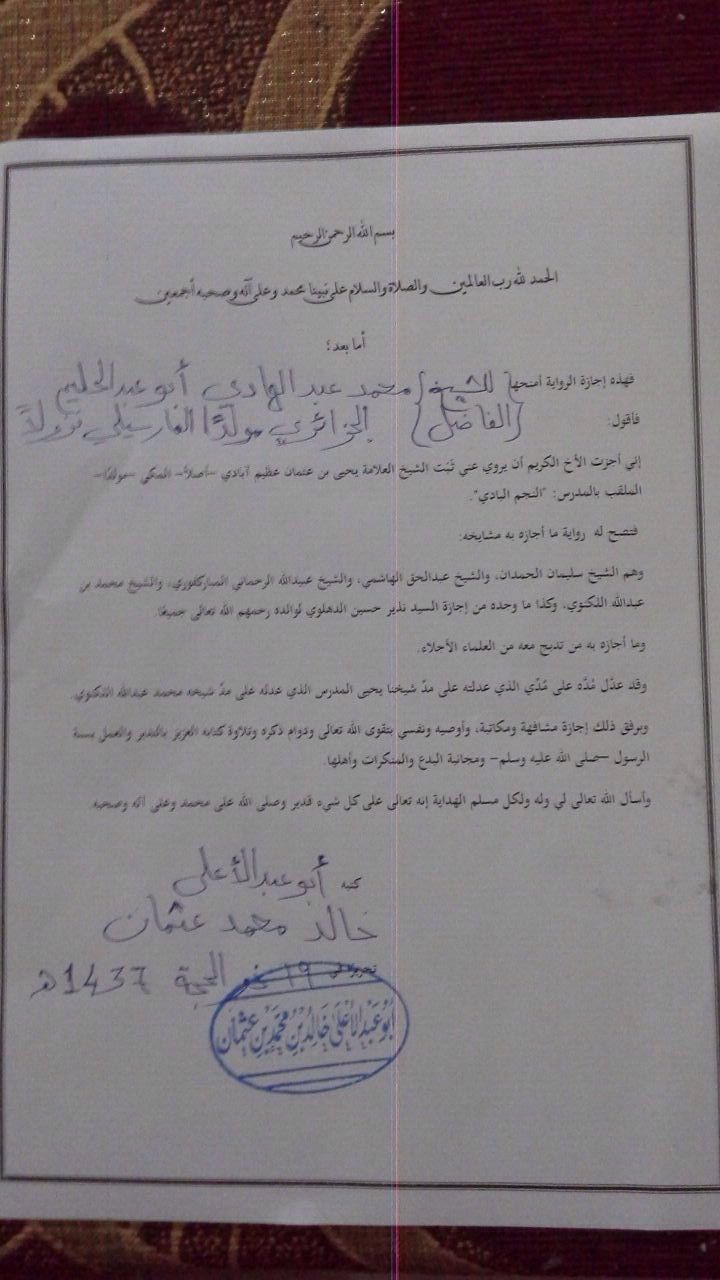 بسم الله الرحمن الرحيم
الحمد لله رب العالمين والصلاة والسلام على نبينا محمد وعلى آله وصحبه أجمعين
أما بعد؛
فهذه إجازة الرواية أمنحها {للشيخ} محمد عبد الهادي أبو عبد الحليم
{الفاضل} الجزائري مولدًا المارسيلي نزولاً
فأقول:
إني أجزت الأخ الكريم أن يروي عني ثَبَت الشيخ العلامة يحيى بن عثمان عظيم آبادي –أصلاً– المكي –مولدًا–
الملقب بالمدرس: "النجم البادي".
فتصح له رواية ما أجازه به مشايخه:
وهم الشيخ سليمان الحمدان، والشيخ عبدالحق الهاشمي، والشيخ عبيدالله الرحماني المباركفوري، والشيخ محمد بن
عبدالله اللكنوي، وكذا ما وجده من إجازة السيد نذير حسين الدهلوي لوالده رحمهم الله تعالى جميعًا.
وما أجازه به من تدبج معه من العلماء الأجلاء.
وقد عدّل مُدّه على مُدّي الذي عدلته على مدّ شيخنا يحيى المدرس الذي عدله على مدّ شيخه محمد عبدالله اللكنوي.
وبرفق ذلك إجازة مشافهة ومكاتبة، وأوصيه ونفسي بتقوى الله تعالى ودوام ذكره وتلاوة كتابه العزيز بالتدبر والعمل بسنة
الرسول –صلى الله عليه وسلم– ومجانبة البدع والمنكرات وأهلها.
وأسأل الله تعالى لي وله ولكل مسلم الهداية إنه تعالى على كل شيء قدير وصلى الله على محمد وعلى آله وصحبه
كتبه أبو عبد الأعلى
خالد محمد عثمان
تحريرًا في ١٩ ذو الحجة 1437 هـ
أَبُو عَبْدِ الأَعْلَى خَالِدُ بْنُ مُحَمَّدِ بْنِ عُثْمَانَ